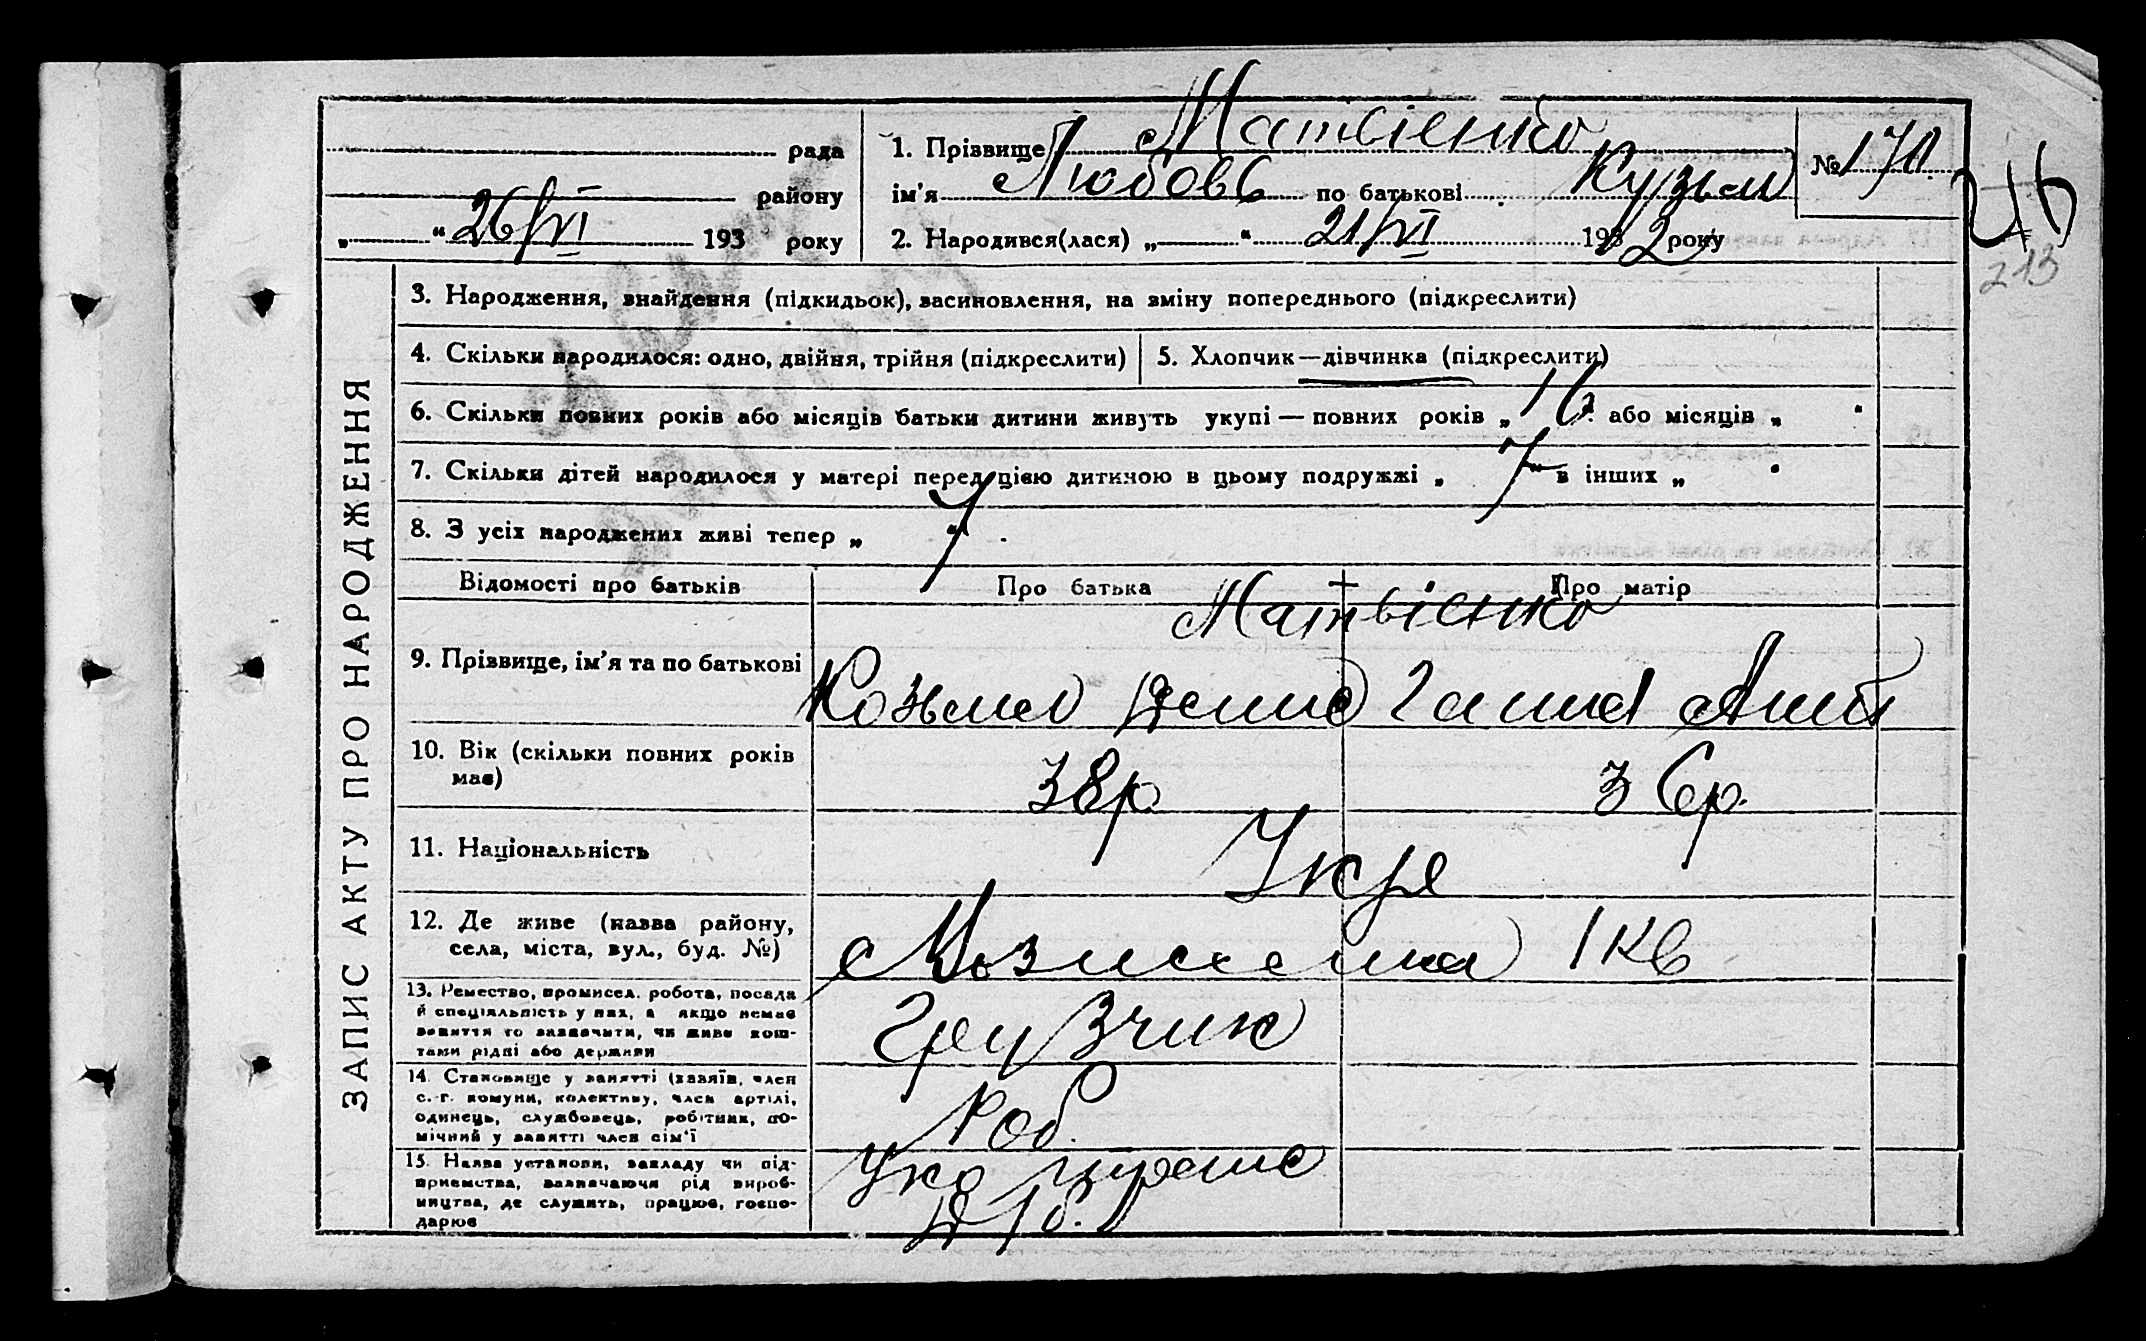 рада
району
„ “ 26/VI 193 року
1. Прізвище Матвієнко
ім'я Любовь по батькові Кузьм
2. Народився(лася) „ “ 21/VI 1932 року
№ 170
213
ЗАПИС АКТУ ПРО НАРОДЖЕННЯ
3. Народження, знайдення (підкидьок), засиновлення, на зміну попереднього (підкреслити)
4. Скільки народилося: одно, двійня, трійня (підкреслити)
5. Хлопчик—дівчинка (підкреслити)
6. Скільки повних років або місяців батьки дитини живуть укупі — повних років „ 16 або місяців „ “
7. Скільки дітей народилося у матері перед цією дитиною в цьому подружжі „ 7 “ в інших „ “
8. З усіх народжених живі тепер „ 7 “.
Відомості про батьків
Про батька
Про матір
Матвієнко
9. Прізвище, ім'я та по батькові
Козьма Денис
Ганна Ант
10. Вік (скільки повних років
має)
38р
36р.
11. Національність
Укр
12. Де живе (назва району,
села, міста, вул., буд. №)
1 кв
13. Ремество, промисел, робота, посада
й спеціяльність у них, а якщо немає
заняття то зазначити, чи живе кош-
тами рідні або держави
Грузчик
14. Становище у занятті (хазяїн, член
с.-г. комуни, колективу, член артілі,
одинець, службовець, робітник, по-
мічний у занятті член сім'ї
Роб.
15. Назва установи, закладу чи під-
приємства, зазначаючи рід вироб-
ництва, де служить, працює, госпо-
дарює